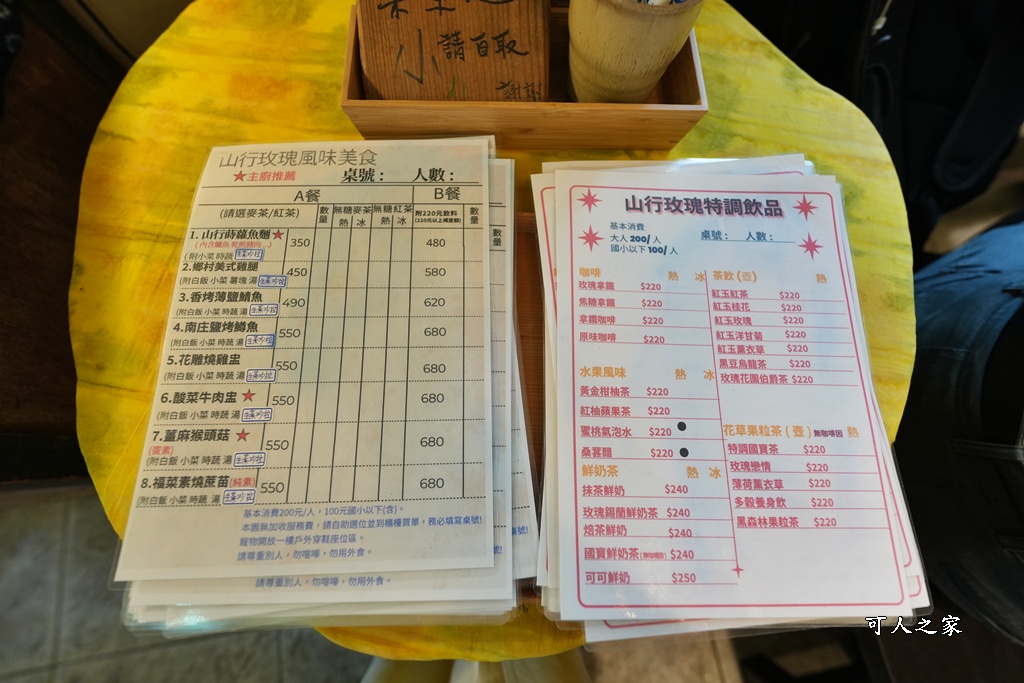 請自取
小
謝謝
山行玫瑰風味美食
★主廚推薦 桌號： 人數：
A餐 B餐
(請選麥茶/紅茶) 數量 無糖麥茶 熱 冰 無糖紅茶 熱 冰 附220元飲料 (220元以上補差額) 數量
1. 山行蒔蘿魚麵★ 350 480
(附小菜 時蔬
2.鄉村美式雞腿 450 580
(附白飯 小菜 薯塊 湯
3.香烤薄鹽鯖魚 490 620
(附白飯 小菜 時蔬 湯
4.南庄鹽烤鱒魚 550 680
(附白飯 小菜 時蔬 湯
5.花雕燒雞盅 550 680
(附白飯 小菜 時蔬 湯
6.酸菜牛肉盅★ 550 680
(附白飯 小菜 時蔬 湯
7.薑麻猴頭菇★ 550 680
(蛋素)
(附白飯 小菜 時蔬 湯
8.福菜素燒蔗苗(純素) 550 680
(附白飯 小菜 時蔬 湯
基本消費200元/人，100元國小以下(含)。
本園無加收服務費，請自助選位並到櫃檯買單，務必填寫桌號!
寵物開放一樓戶外穿鞋座位區。
請尊重別人，勿喧嘩，勿用外食。
請尊重別人，勿喧嘩，勿用外食。
數量
桌號!
山行玫瑰特調飲品
基本消費
大人 200/人
國小以下 100/人
桌號： 人數：
咖啡 熱 冰
玫瑰拿鐵 $220
焦糖拿鐵 $220
拿鐵咖啡 $220
原味咖啡 $220
水果風味 熱 冰
黃金柑柚茶 $220
紅柚蘋果茶 $220
蜜桃氣泡水 $220 ●
桑葚醋 $220 ●
鮮奶茶 熱 冰
抹茶鮮奶 $240
玫瑰錫蘭鮮奶茶 $240
焙茶鮮奶 $240
國寶鮮奶茶(無咖啡因) $240
可可鮮奶 $250
茶飲(壺) 熱
紅玉紅茶 $220
紅玉桂花 $220
紅玉玫瑰 $220
紅玉洋甘菊 $220
紅玉薰衣草 $220
黑豆烏龍茶 $220
玫瑰花園伯爵茶 $220
花草果粒茶(壺)無咖啡因 熱
特調國寶茶 $220
玫瑰戀情 $220
薄荷薰衣草 $220
多穀養身飲 $220
黑森林果粒茶 $220
可人之家